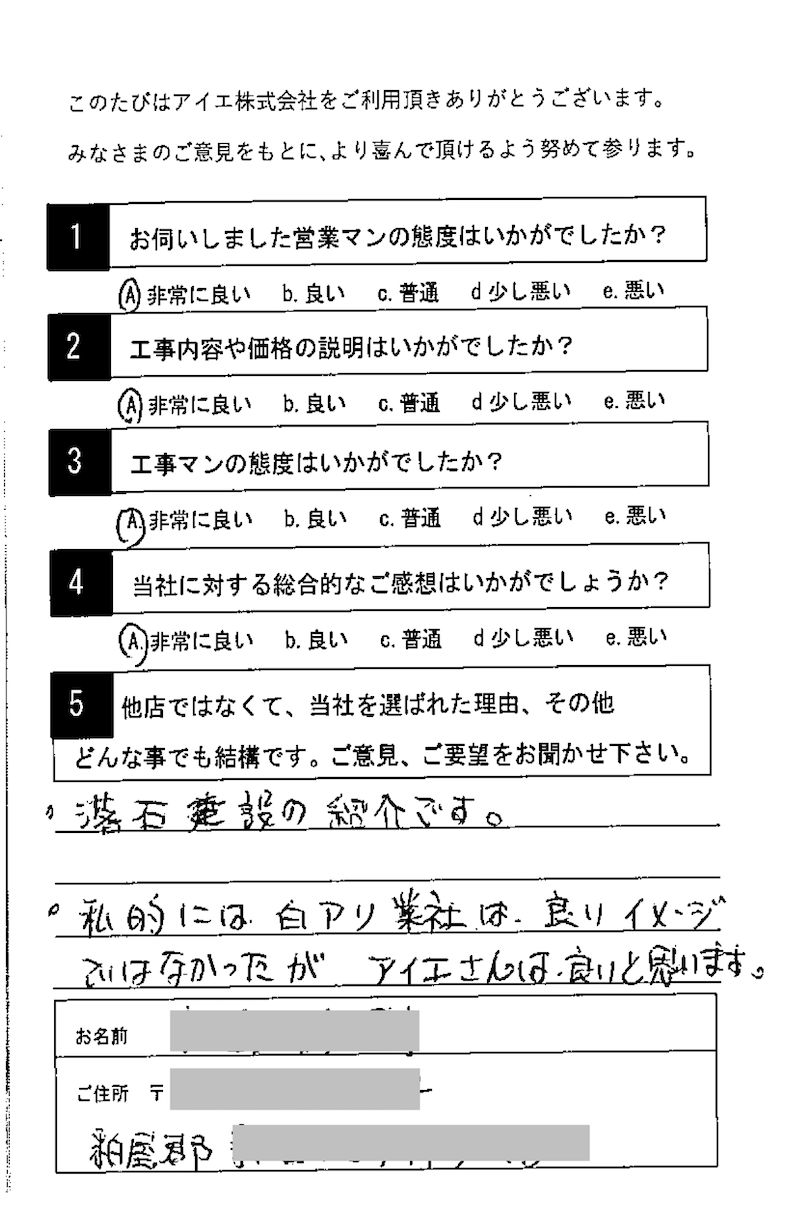 このたびはアイエ株式会社をご利用頂きありがとうございます。
みなさまのご意見をもとに、より喜んで頂けるよう努めて参ります。
1 お伺いしました営業マンの態度はいかがでしたか?
A 非常に良い b. 良い c. 普通 d 少し悪い e. 悪い
2 工事内容や価格の説明はいかがでしたか?
A 非常に良い b. 良い c. 普通 d 少し悪い e. 悪い
3 工事マンの態度はいかがでしたか?
A. 非常に良い b. 良い c. 普通 d 少し悪い e. 悪い
4 当社に対する総合的なご感想はいかがでしょうか?
A. 非常に良い b. 良い c. 普通 d 少し悪い e. 悪い
5 他店ではなくて、当社を選ばれた理由、その他
どんな事でも結構です。ご意見、ご要望をお聞かせ下さい。
。落石建設の紹介です。
。私的には白アリ業社は、良いイメージ
ではなかったが アイエさんは、良いと思います。
お名前
ご住所 〒
粕屋郡